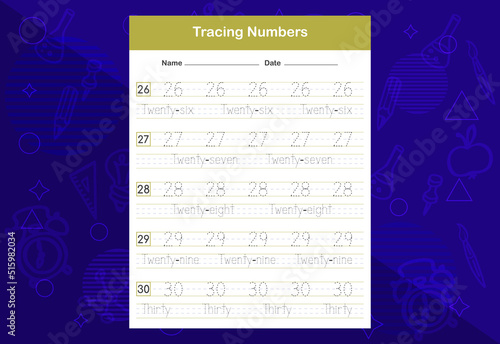 Tracing Numbers
Name Date
26 26 26 26 26 26
Twenty-six Twenty-six Twenty-six
27 27 27 27 27 27
Twenty-seven Twenty-seven
28 28 28 28 28 28
Twenty-eight Twenty-eight
29 29 29 29 29 29
Twenty-nine Twenty-nine Twenty-nine
30 30 30 30 30 30
Thirty Thirty Thirty Thirty
Adobe Stock | #515982034